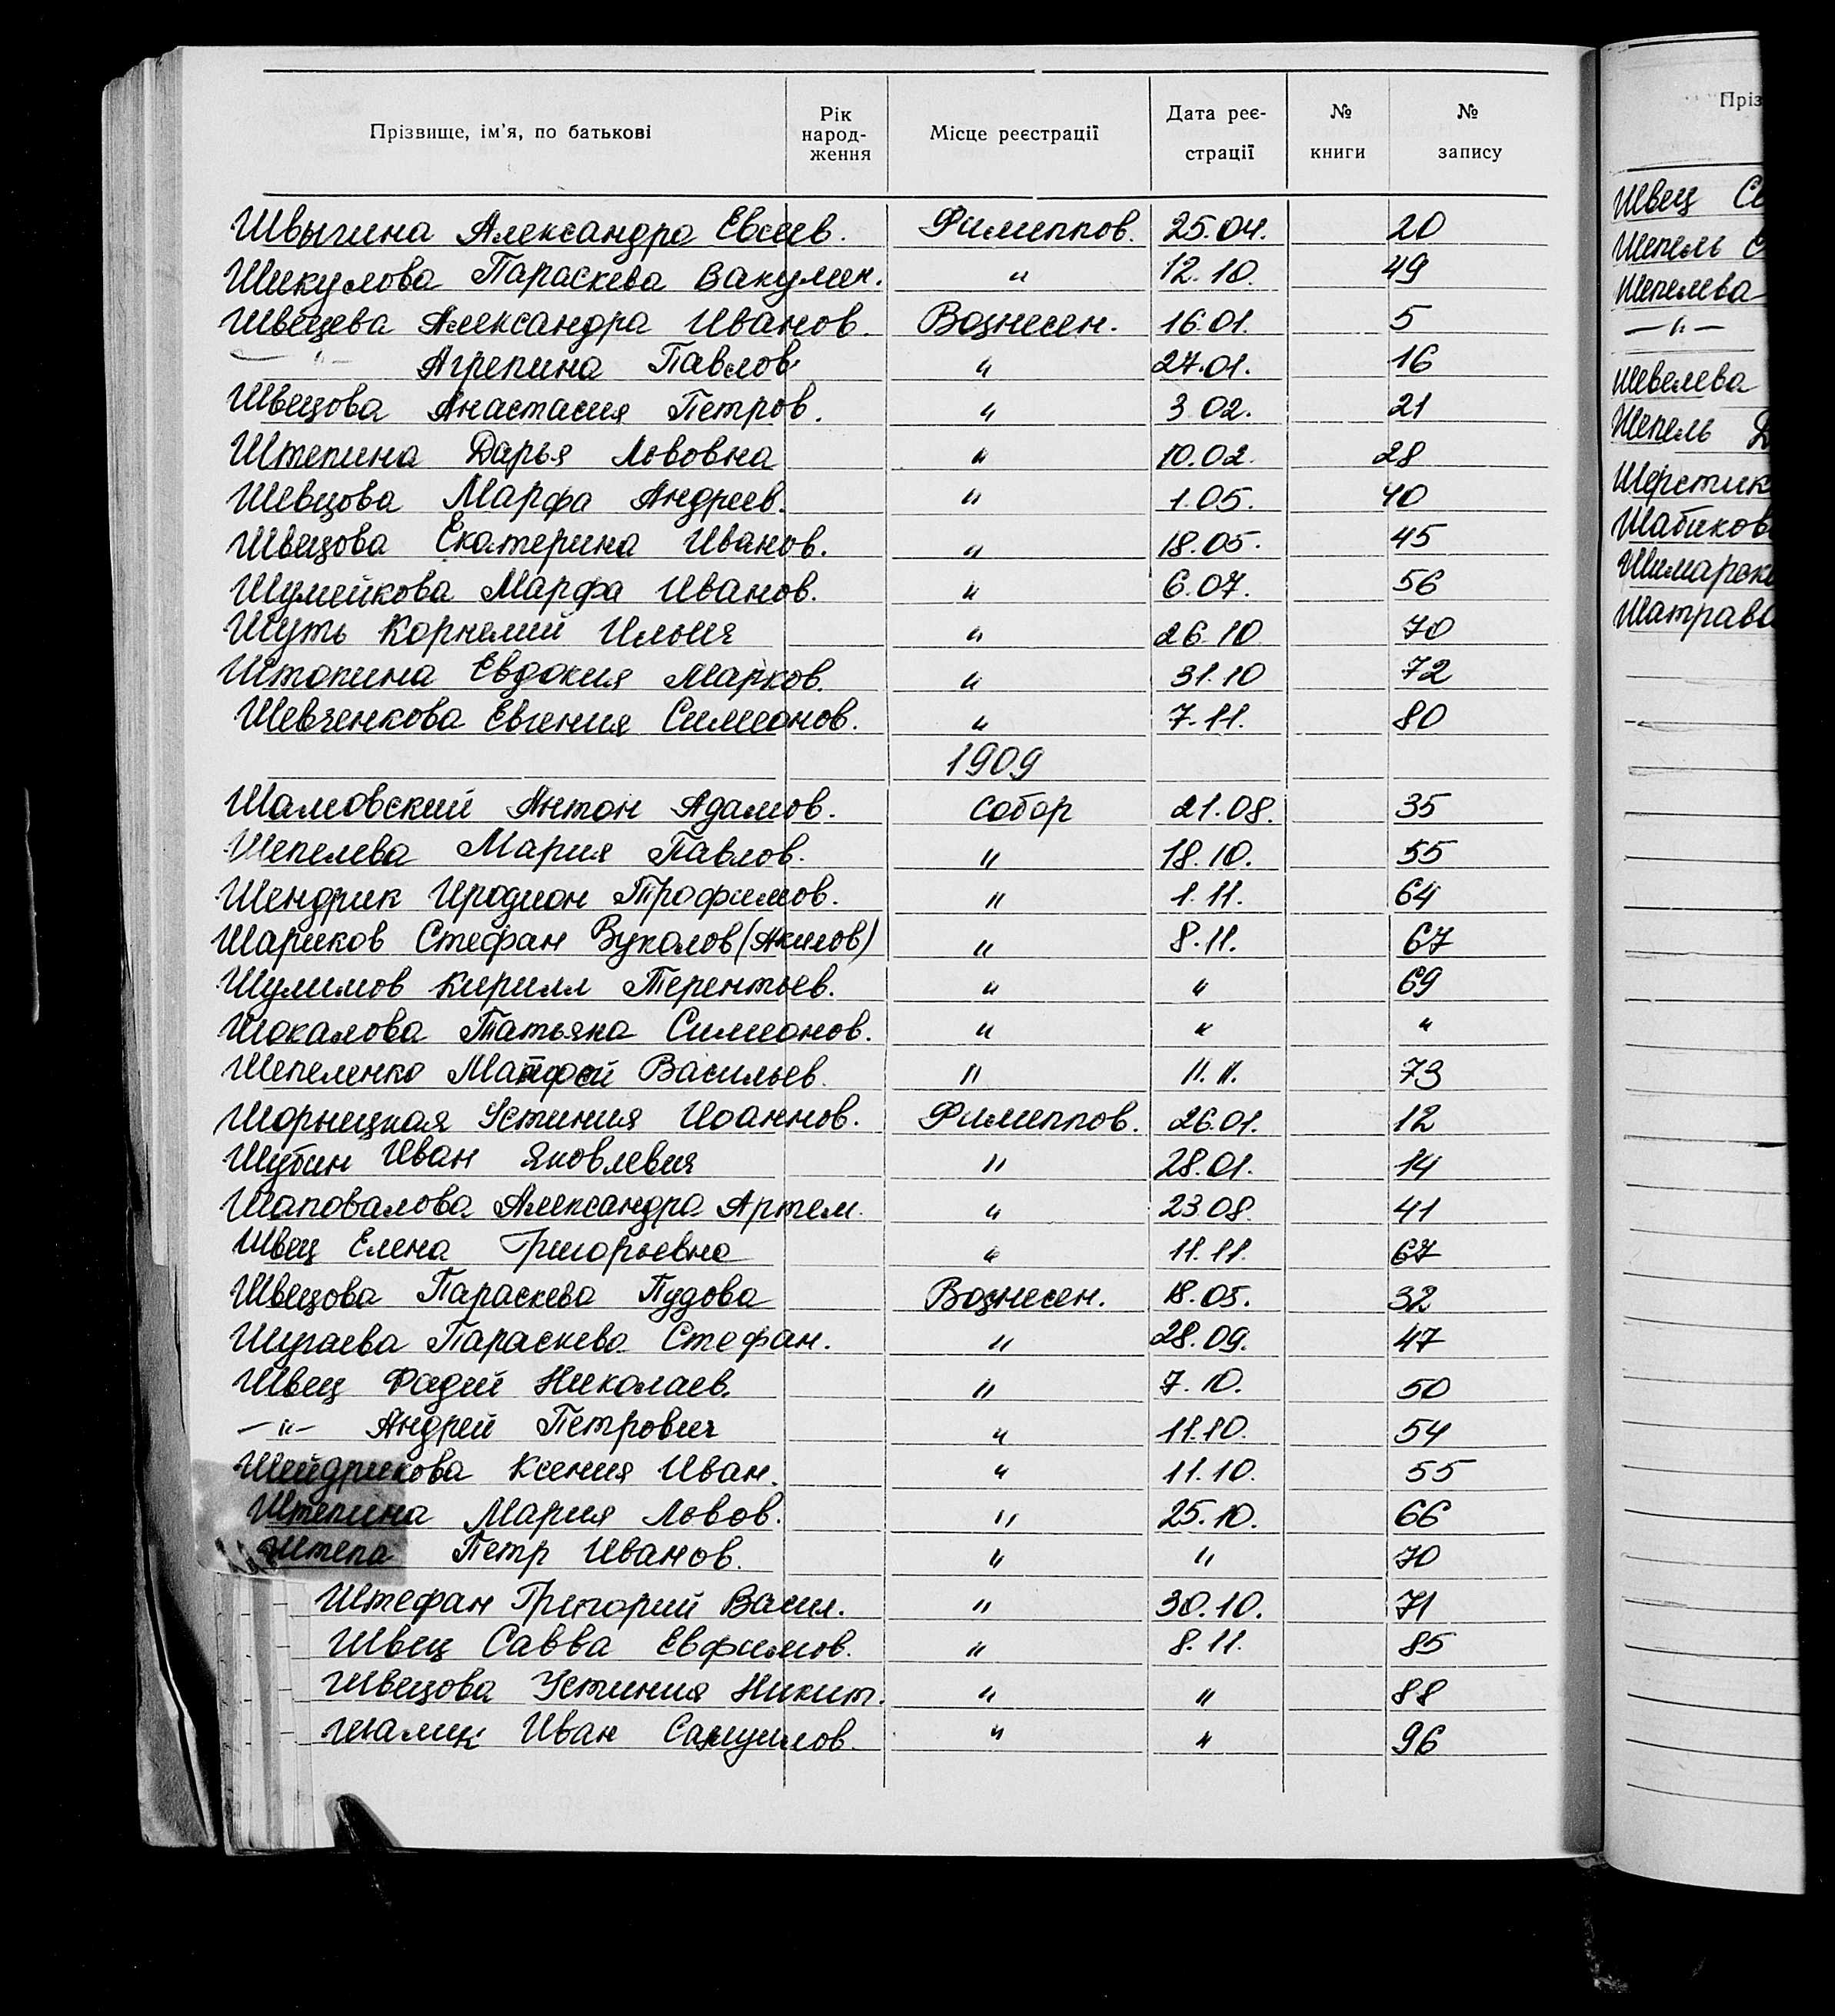 Прізвище, ім'я, по батькові Рік народ-ження Місце реєстрації Дата реє-страції № книги № запису
Швыгина Александра Евсеев. Филиппов. 25.04. 20
Шикулова Параскева Вакулин. " 12.10. 49
Швецева Александра Иванов. Вознесен. 16.01. 5
—"— Агрепина Павлов " 27.01. 16
Швецова Анастасия Петров. " 3.02. 21
Штепина Дарья Львовна " 10.02. 28
Шевцова Марфа Андреев. " 1.05. 40
Швецова Екатерина Иванов. " 18.05. 45
Шумейкова Марфа Иванов. " 6.07. 56
Шуть Корнелий Ильич " 26.10 70
Штопина Евдокия Марков. " 31.10 72
Шевченкова Евгения Симеонов. " 7.11. 80
1909
Шамовский Антон Адамов. Собор 21.08. 35
Шепелева Мария Павлов. " 18.10. 55
Шендрик Иродион Трофимов. " 1.11. 64
Шариков Стефан Вуколов (Акилов) " 8.11. 67
Шулимов Кирилл Терентьев. " " 69
Шокалова Татьяна Симеонов. " " "
Шепеленко Матфей Васильев. " 11.11. 73
Шорнецкая Устиния Иоаннов. Филиппов. 26.01. 12
Шубин Иван Яковлевич " 28.01. 14
Шаповалова Александра Артем. " 23.08. 41
Швец Елена Григорьевна " 11.11. 67
Швецова Параскева Пудова Вознесен. 18.05. 32
Шугаева Параскева Стефан. " 28.09. 47
Швец Фадей Николаев. " 7.10. 50
—"— Андрей Петрович " 11.10. 54
Шейдрикова Ксения Иван. " 11.10. 55
Штепина Мария Львов. " 25.10. 66
Штепа Петр Иванов. " " 70
Штефан Григорий Васил. " 30.10. 71
Швец Савва Евфимов. " 8.11. 85
Швецова Устиния Никит. " " 88
Шамик Иван Самуилов. " " 96
Пріз
Швец
Шепель
Шепелева
—"—
Шевелева
Шепель
Шерстик
Шабиков
Шимарск
Шатрав